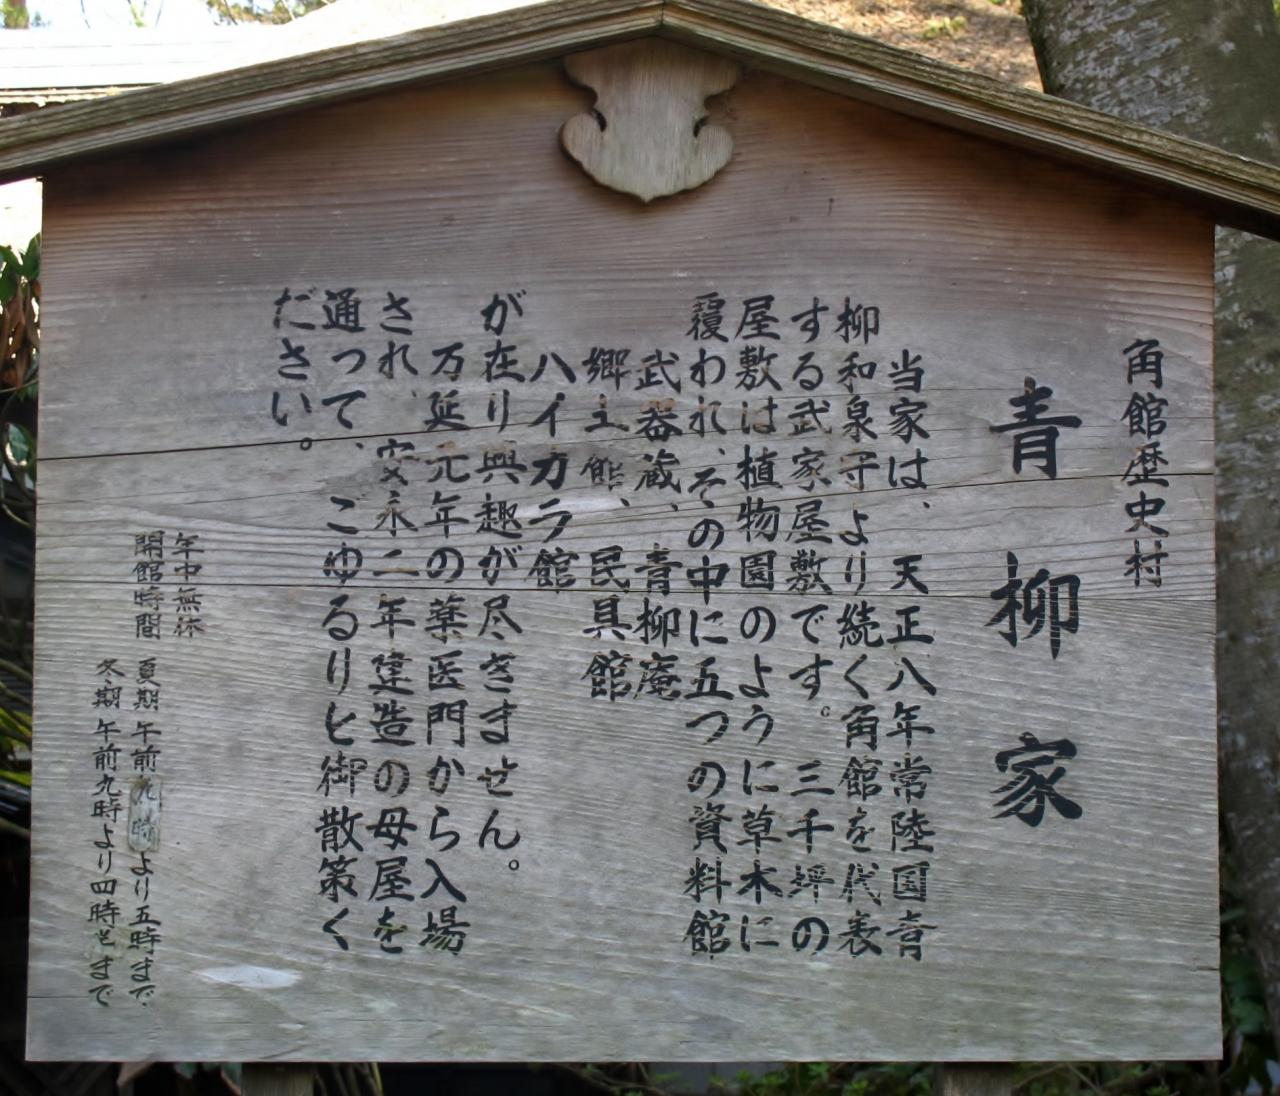 角館歴史村
青柳家
当家は、天正八年常陸国青
柳和泉守より続く角館を代表
する武家屋敷です。三千坪の
屋敷は植物園のように草木に
覆われ、その中に五つの資料館
武器蔵、青柳庵
郷土館、民具館
ハイカラ館
が在り興趣が尽きません。
万延元年の薬医門から入場
され、安永二年建造の母屋を
通って、ごゆるりと御散策く
ださい。
年中無休
開館時間 夏期 午前九時より五時まで
冬期 午前九時より四時まで